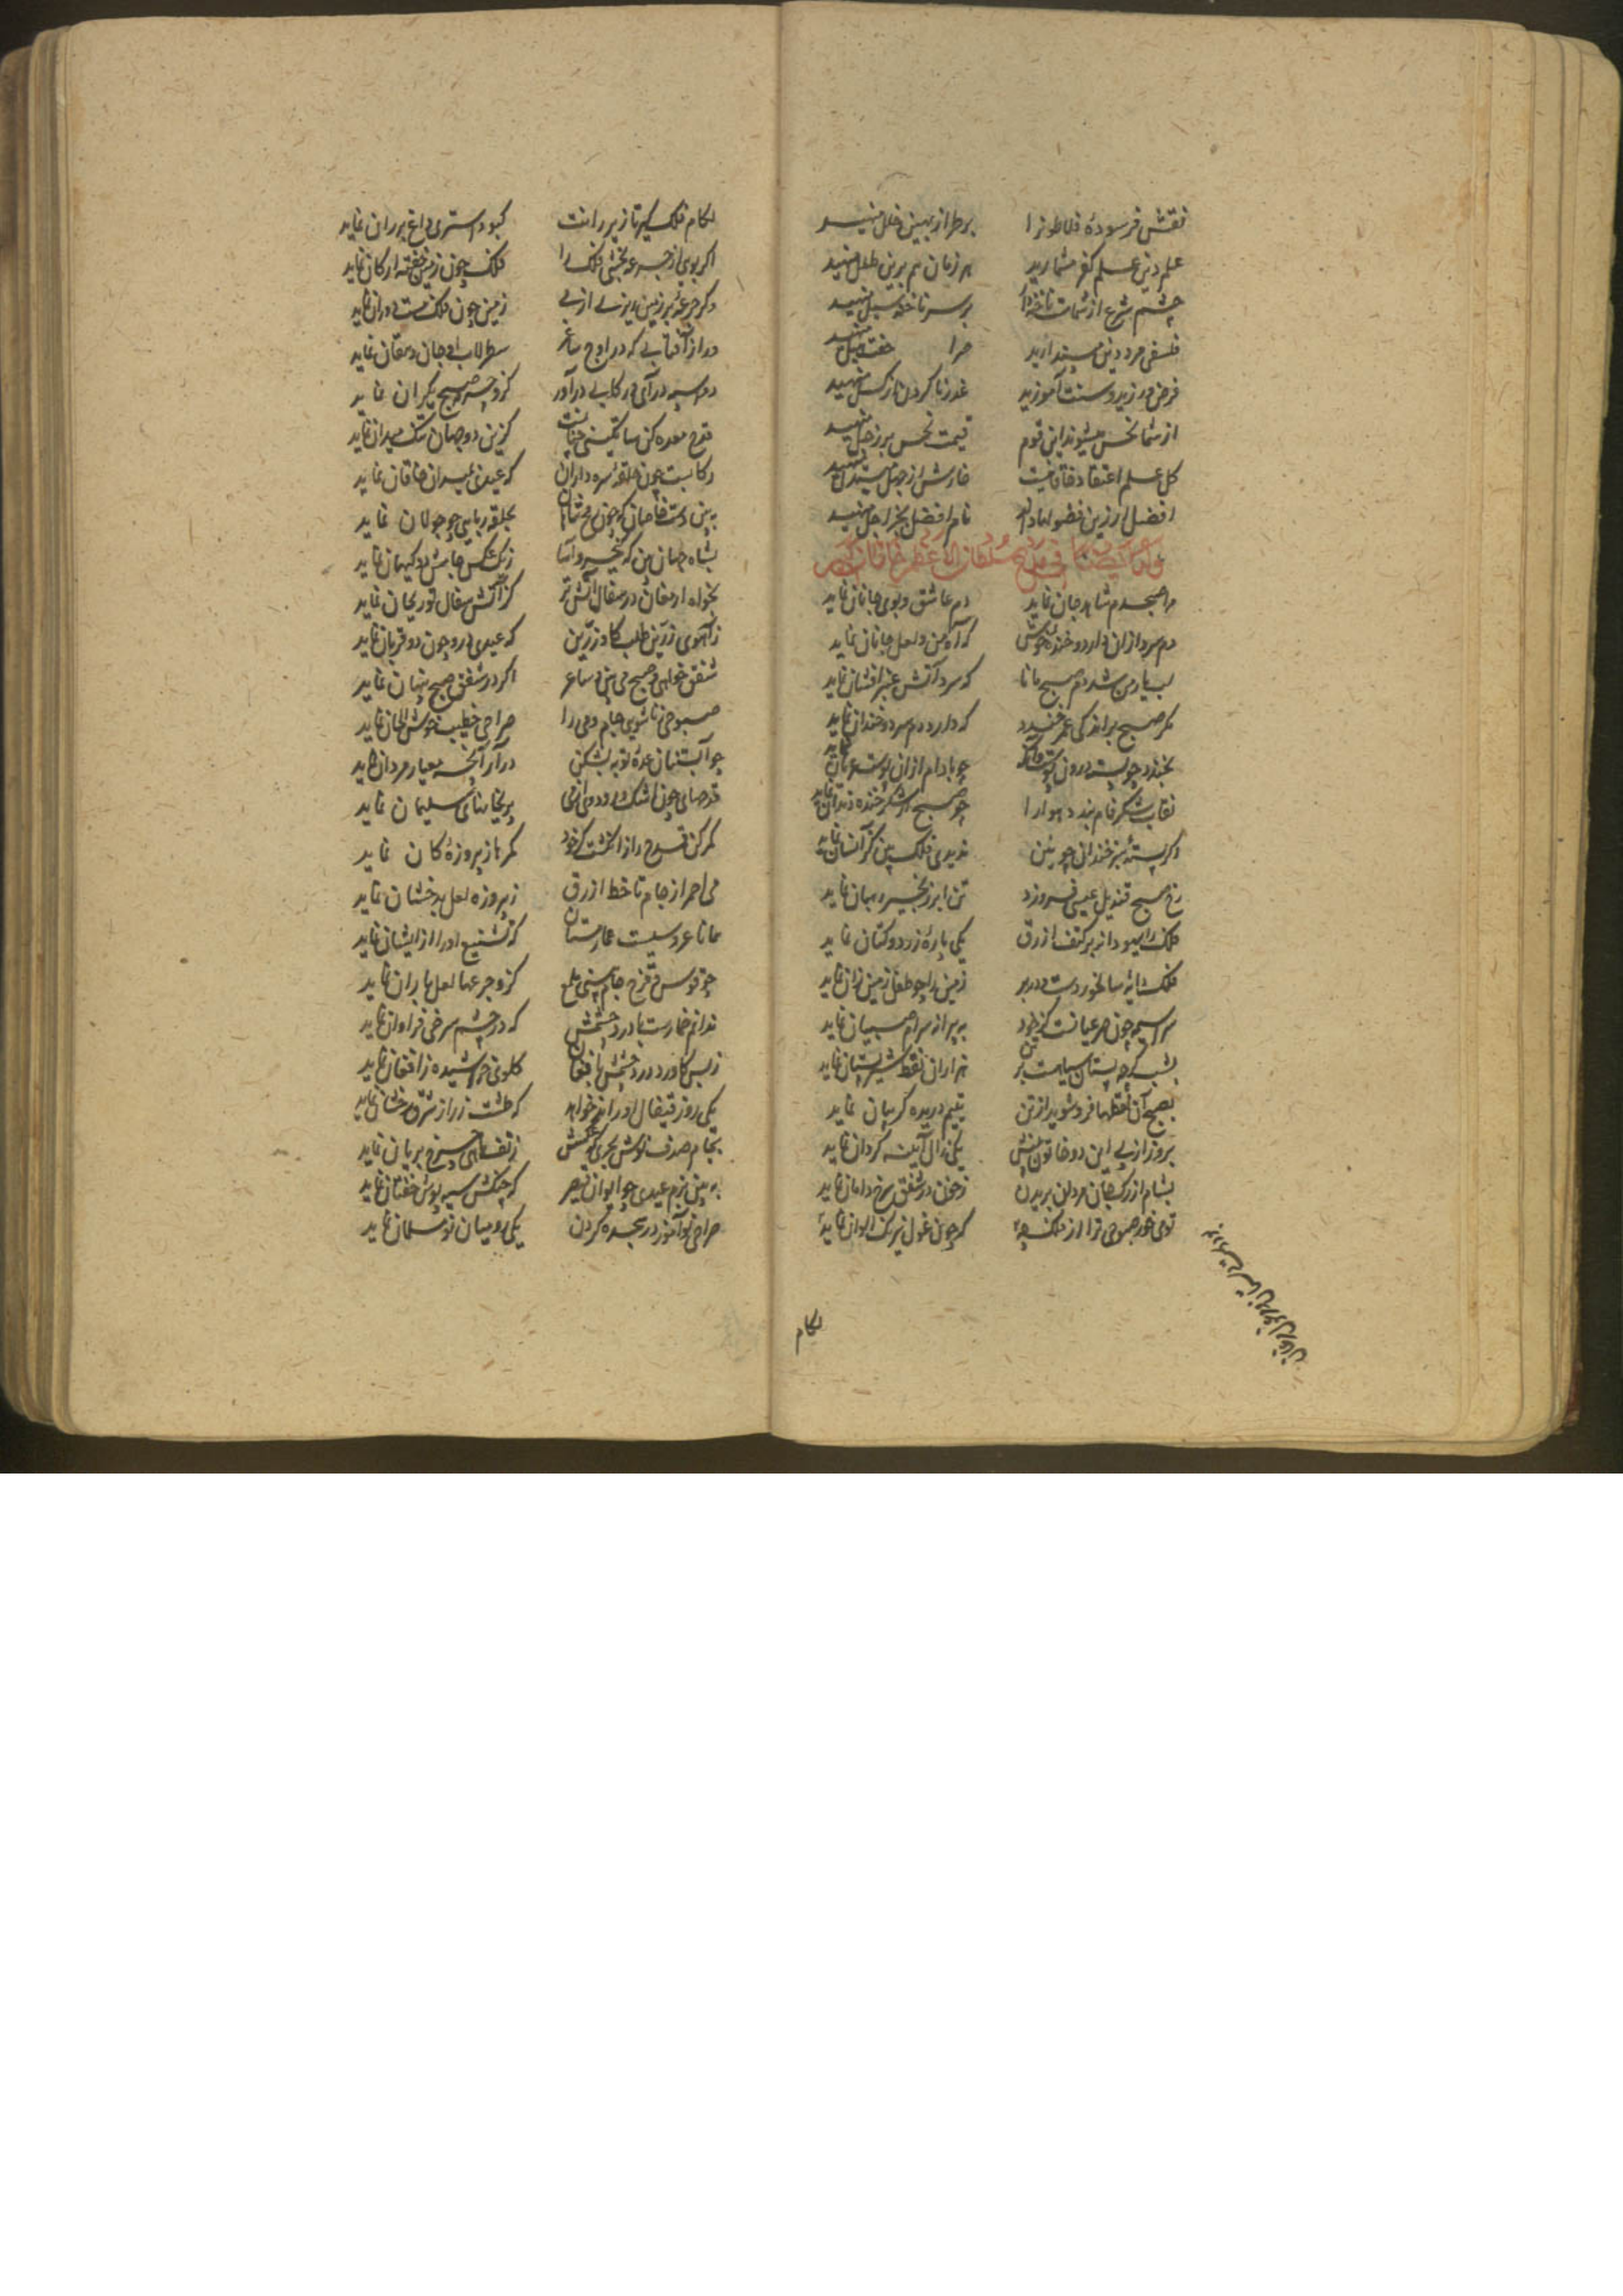 نقش فرسودهٔ فلاطونرا بر طراز بهین حلل منهید
علم دین علم کفر مشمارید هر زمان هم برین طلل منهید
چشم شرع از شمات ناخنه دار بر سر ناخنه سبل منهید
فلسفی مرد دین مپندارید حیز را جفت منهید
فرض ورزید و سنت آموزید عذر ناکردن از کسل منهید
از شما نحس میشوند این قوم قیمت نحس بر زحل منهید
کل علم اعتقاد خاقانیست خارش از جهل منهید
افضل ار زین فضولها راند نام افضل بجز اضل منهید
وله ایضا فی مدح سلطان الاعظم خاقان
مرا صبحدم شاهد جان نماید دم عاشق و بوی جانان نماید
دم سرد از آن دارد و خنده خوش که آه من و لعل جانان نماید
لب یار من شد دم صبح مانا که سرد آتش عنبر افشان نماید
مگر صبح بر اندکی عمر خندد که دارد دم سرد و خندان نماید
بخندد چو پسته درون پوست وانگه چو بادام از آن پوست عریان نماید
نقاب شکرفام بندد هوا را چو صبح از شکرخنده دندان نماید
وگر پسته سبز خندان چو بینی ندیدی فلک بین کز آنسان نماید
رخ صبح قندیل عیسی فروزد تن ابر زنجیر رهبان نماید
فلک را یهودانه بر کتف ازرق یکی پارهٔ زرد کتان نماید
فلک دایه سالخورد است و در بر زمین را چو طفل زمن زان نماید
سراسیمه چون صرعیانست کز خود به پیرانه سر ام صبیان نماید
بشب گرچه پستان سیاهست بر تن هزاران نقط شیر پستان نماید
بصبح آن نقطها فرو شوید از تن یتیم دریده گریبان نماید
بروز از پی این دو خاتون بینش یکی زال آیینه گردان نماید
بشام از رگ جان مردان بریدن ز خون در شفق سرخ دامان نماید
تو می خور صبوحی ترا از فلک چه که چون غول نیرنگ الوان نماید
لگام
لگام فلک گیر تا زیر رانت کبود استری داغ بر ران نماید
اگر بویی از جرعه بخشی فلک را فلک چون زمین خفته ارکان نماید
وگر جرعهٔ بر زمین ریزی از می زمین چون فلک مست دوران نماید
دو از آفتابی که در اوج ساغر سطرلاب او جان دهقان نماید
دو اسبه درآی و رکابی درآور کزو چرمه صبح یکران نماید
قدح معده کن ساتگینی جنیبت کزین دو جهان تنگ میدان نماید
رکابست چون حلقه نیزه داران که عیدی بمیدان خاقان نماید
ببین دست خاصان که چون رمح شاهان بحلقه ربایی چو جولان نماید
بشاه جهان بین که کیخسرو آسا ز یک عکس جامش دو کیهان نماید
بخواه ارمغان در سفال آتش تر کز آتش سفال تو ریحان نماید
ز آهوی زرین طلب گاو زرین که عیدی درو چون دو قربان نماید
شفق خواهی و صبح می بین و ساغر اگر در شفق صبح پنهان نماید
صبوحی زناشویی جام و می را صراحی خطیب خوش الحان نماید
چو آبستنان عدهٔ توبه بشکن درآر آنچه معیار مردان نماید
قدحهای چون اشک داودی از می پریخانهای سلیمان نماید
کمر کن قدح را ز انگشت کو خود کمرها ز پیروزهٔ کان نماید
می احمر از جام تا خط ازرق ز پیروزه لعل بدخشان نماید
همانا خروسیست غماز مستان که تشنیع او را از ایشان نماید
چو قوس قزح جام بینی ملمع کزو جرعها لعل باران نماید
ندانم خمارست یا درد چشمش که در چشم سرخی فراوان نماید
ز بس کاورد درد چشمش بافغان گلوی خراشیده ز افغان نماید
یکی روز قیفال او راند خواهد که طشت زر از شرق رخشان نماید
بجام صدف نوش بحری که عکشش ز تف ماهی چرخ بریان نماید
ببین بزم عیدی چو ایوان قیصر که چنگش سیه پوش خفتان نماید
صراحی نوآموز در سجده کردن یکی رومیان نو مسلمان نماید